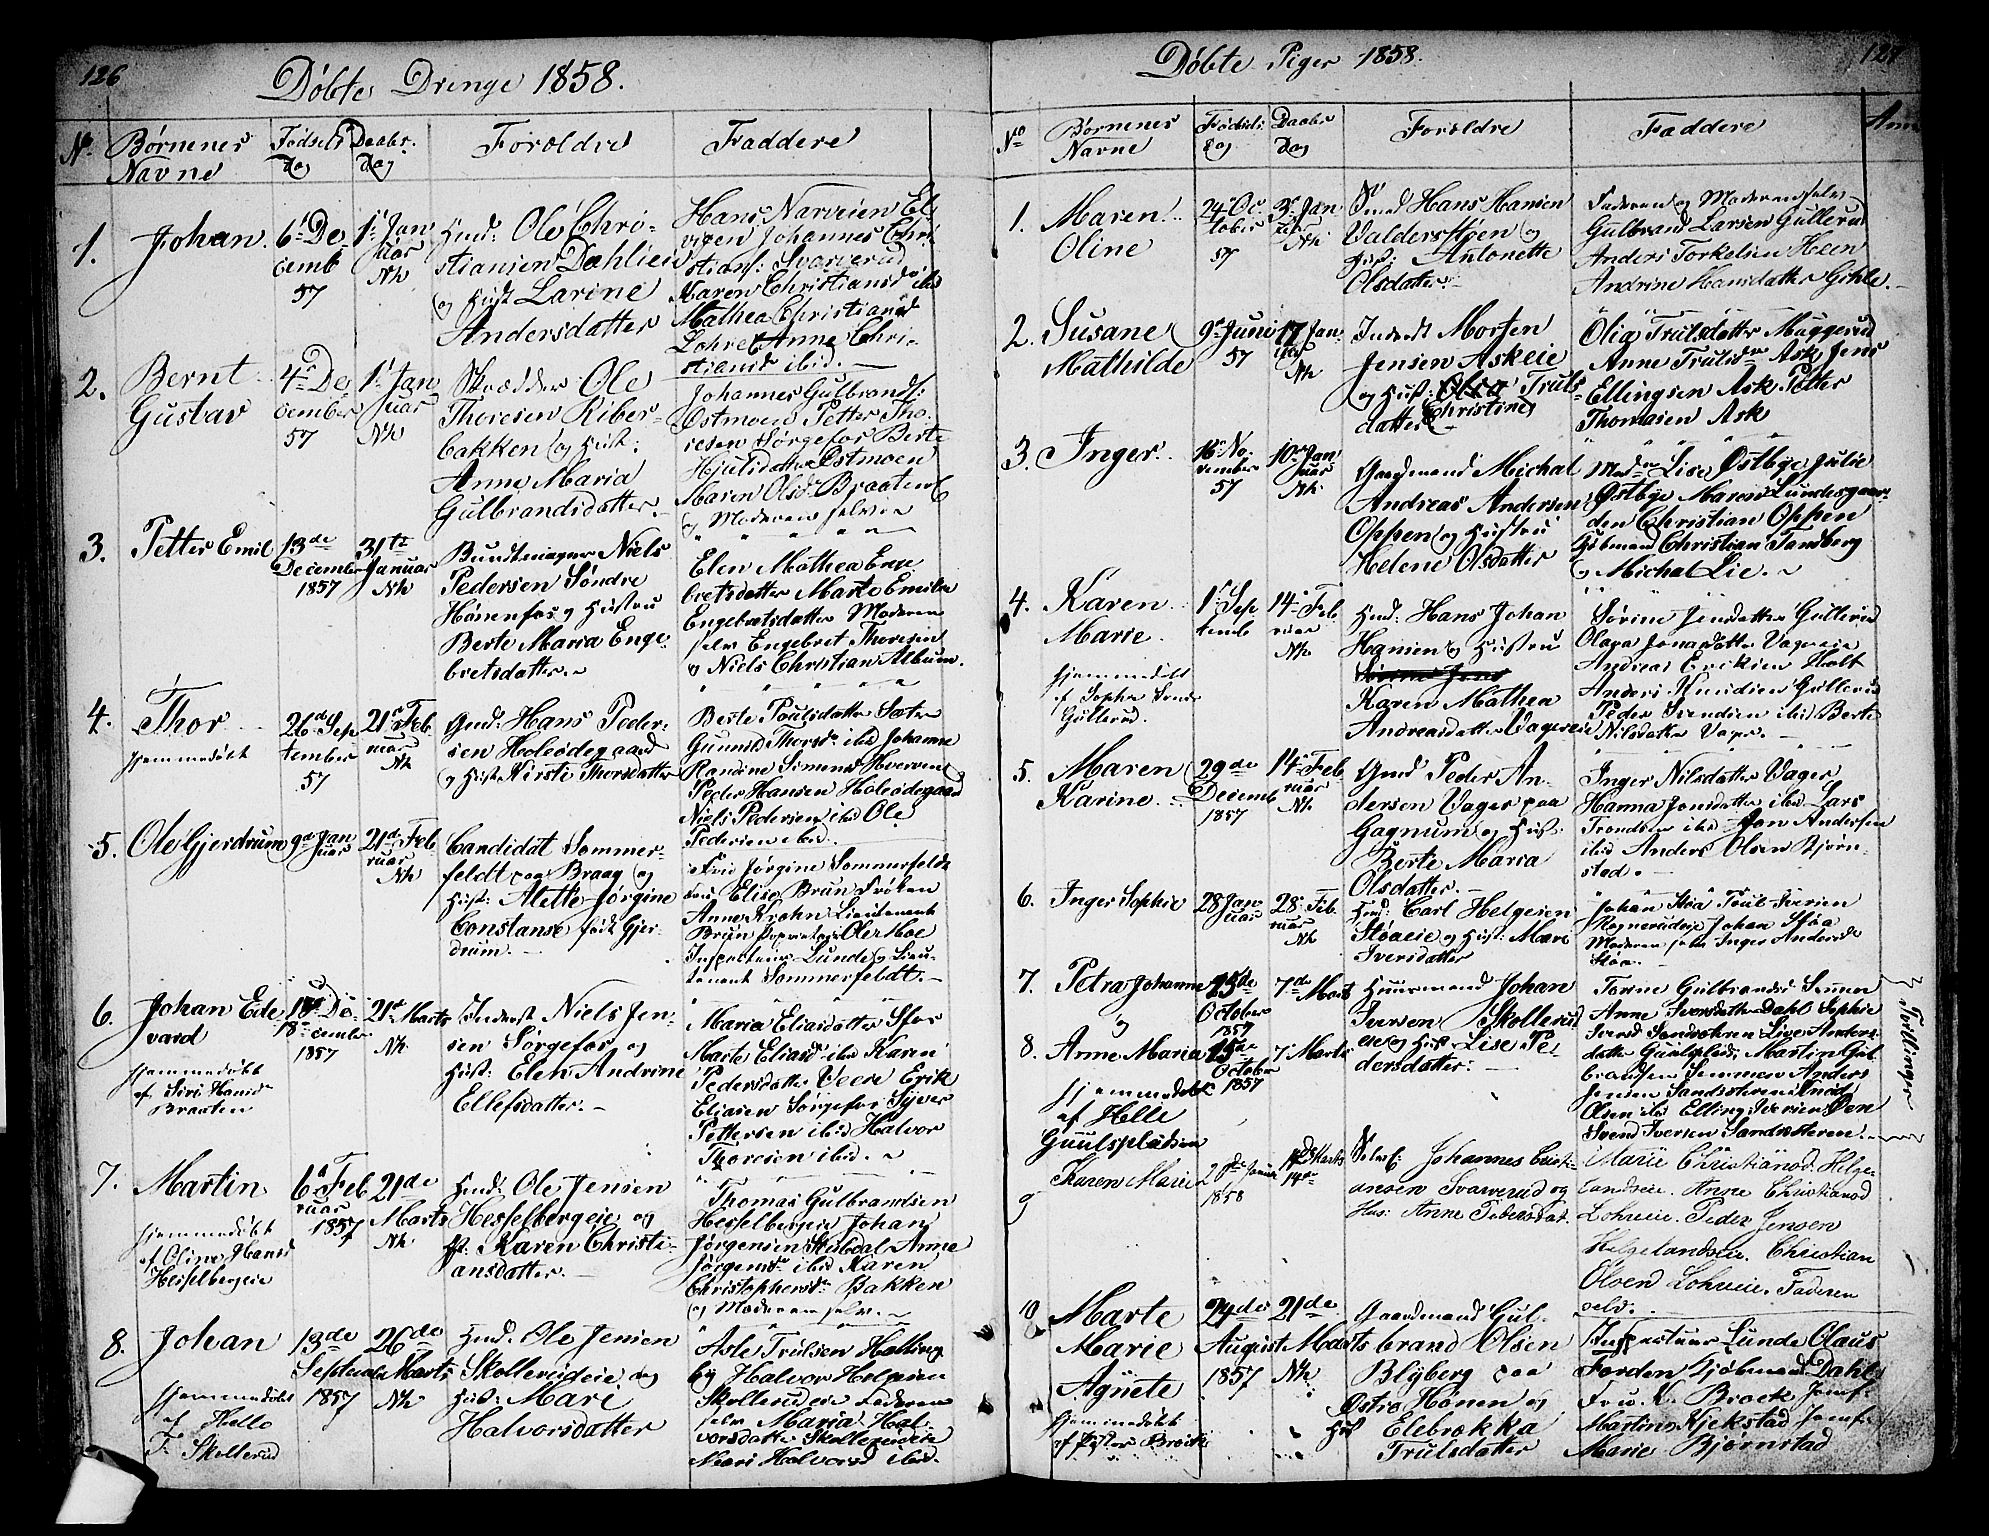 126
Døbte Drenge 1858.
No. Børnenes Navne
Fødsels Dag
Daabs Dag
Forældre
Faddere
1. Johan
6te De-
cemb
57
1ste Jan
uar
Nk
Ole Chri-
stiansen Dahlien
og Hust Larine
Andersdatter
Karen Christiansd ibd
Mathea Christiansd
Lohre Anne Chri-
stiansd ibid.
2. Bernt
Gustav
4de De
cember
57
1ste Jan
uar
Nk
Skrædder Ole
Thoresen Riber-
bakken og Hust:
Anne Maria
Gulbrandsdatter.
Johannes Gulbrands:
Østmoen Petter Tho-
resen Sørgefos Berte
Hjulsdatter Østmoen
Maren Olsdr Braaten
og Moderen selv
3. Petter Emil
13de
December
1857
31te
Januar
Nk
Bundtmager Niels
Pedersen Søndre
Hønenfos og Hustru
Berte Maria Enge-
bretsdatter.
Elen Mathea Enge
bretsdatter Marte Emilie
Engebretsdatter Moderen
selv Engebret Thoresen
og Niels Christian Album.
4. Thor
hjemmedøbt
26de Sep
tember
57
21de Feb
ruar
Nk
Gmd: Hans Peder-
sen Holeødegaard
og Hust Kirsti Thorsdatter
Berte Poulsdatter Sæter
Gunnild Thorsdr ibid Johanne
Randine Simens Hverven
Peder Hansen Holeødegaard
Niels Pedersen ibid Ole
Pedersen ibid.
5. Ole Gjerdrum
9de Jan
uar
21de Feb
ruar
Nk
Candidat Sommer-
feldt paa Braag og
Hust: Alette Jørgine
Constanse født Gjer-
drum.
Frue Jørgine Sommerfeldt
Elise Brun Frøken
Anne Krohn Lieutenant
Brun Proprietair
Lunde og Lieu-
tenant Sommerfeldt.
6. Johan Ede
vard
hjemmedøbt
af Siri Hansd
Braaten
18de De
cember
1857
21de Marts
Nk
Inderst Niels Jen-
sen Sørgefos og
Hust: Elen Andrine
Ellefsdatter.
Maria Eliasdatter
Marte Eliasd ibid Karen
Pedersdatter Veere Erik
Eliasen Sørgefos Syver
Pettersen ibid Halvor
Thoresen ibid.
7. Martin
hjemmedøbt
af Oline Hansd
Hesselbergeie
6te Feb
ruar
1857
21de
Marts
Nk
Hmd: Ole Jensen
Hesselbergeie og
H: Karen Christi-
ansdatter.
Thomas Gulbrandsen
Hesselbergeie Johan
Jørgensen Skibdal Anne
Jørgensdr ibid Karen
Christophersdr Bakken
og Moderen selv.
8. Johan
hjemmedøbt
af Helle
Skollerud
13de
September
1857
26de
Marts
Nk
Hmd: Ole Jensen
Skollerudeie og
Hust: Mari
Halvorsdatter
Asle Trulsen Halling
by Halvor Helgesen
Skollerudeie Faderen
selv Maria Hal
vorsdatter Skollerudeie
Mari Halvorsd ibid.
127
Døbte Piger 1858.
No Børnenes Navne
Fødsels Dag
Daabs Dag
Forældre
Faddere
Anm
1. Maren
Oline
24de Oc
tober
57
3de Jan
uar
Nk
Smed Hans Hansen
Valdersstøen og
Hust: Antonette
Olsdatter.
Faderen og Moderen selv
Gulbrand Larsen Gullerud
Anders Torkelsen Hoen
Andrine Hansdatter Gihle.
2. Susane
Mathilde
9de Juni
57
17 Jan
uar
Nk
Inderst Morten
Jensen Askeie
og Hust: Truls
datter Christine
Olia Trulsdatter Muggerud
Anne Trulsdr Ask Jens
Ellingsen Ask Petter
Thomasen Ask
3. Inger
16de No-
vember
57
10de Jan
uar
Nk
Gaardmand Michal
Andreas Andersen
Oppen og Hustru
Helene Olsdatter
Madm Lise Østbye Julie
Østbye Maren Lundesgaar-
den Christian Oppen
Kjøbmand Christian Tandberg
og Michal Lie.
4. Karen
Marie
hjemmedøbt
af Sophie
Gullerud.
1ste Sep
temb
14de Feb
ruar
Nk
Hmd: Hans Johan
Hansen og Hustru
Karen Mathea
Andreasdatter Vagereie
Sørine Jensdatter Gullerud
Olava Jonasdatter Vagereie
Andreas Eriksen Holt
Anders Knudsen Gullerud
Peder Svendsen ibid Berte
Nilsdatter Vager.
5. Maren
Karine
29de
Decemb
1857
14de Feb
ruar
Nk
Gmd Peder An-
dersen Vager paa
Gagnum og Hust:
Berte Maria
Olsdatter.
Inger Nilsdatter Vager
Hanna Jonsdatter ibid Lars
Trondsen ibid Jon Andersen
ibid Anders Olsen Bjørn-
stad.
6. Inger Sophie
28 Jan
uar
28de Feb
ruar
Nk
Hmd: Carl Helgesen
Støaeie og Hust: Mari
Iversdatter
Johan Støa Poul Iversen
Ragnerudeie Johan Støa
Moderen selv Inger Andersdr
Støa.
7. Petra Johanne
og
25de
October
1857
7de Marts
Huusmand Johan
Iversen Skollerud
eie og Hust: Lise Pe-
dersdatter.
Torine Gulbrandsd Semmen
Anne Iversdatter Dahl Sophie
Svensd Sandsæteren Live Anders-
datter Guulspladsen Martin Gul
brandsen Semmen Anders
Jensen Sandsæteren Knud
Olsen ibid Elling Iversen Øen
Svend Iversen Sandsæteren.
Tvillinger
8. Anne Maria
hjemmedøbt
af Helle
Guulspladsen
25de
October
1857
7 Marts
9 Karen Marie
2de Januar
1858
14de Marts
Selvei: Johannes Cristi-
ansen Svarverud og
Hus: Anne Pedersdat.
Marie Christiansd. Helge-
landseie. Anne Christiansd
Lohreie. Peder Jensen
Helgelandseie. Christian
Olsen Lohreie. Faderen
selv.
10 Marte
Marie
Agnete
hjemmedøbt
af Petter Brock
24de
August
1857
21de
Marts
Nk
Gaardmand Gul-
brand Olsen
Blyberg paa
Østre Hønen og
Hust Elebrokka
Trulsdatter
Inspecteur Lunde Olaus
Forden Kjøbmand Dahl
Frue K. Brock Jomf.
Martine Kjekstad Jomf.
Marie Bjørnstad